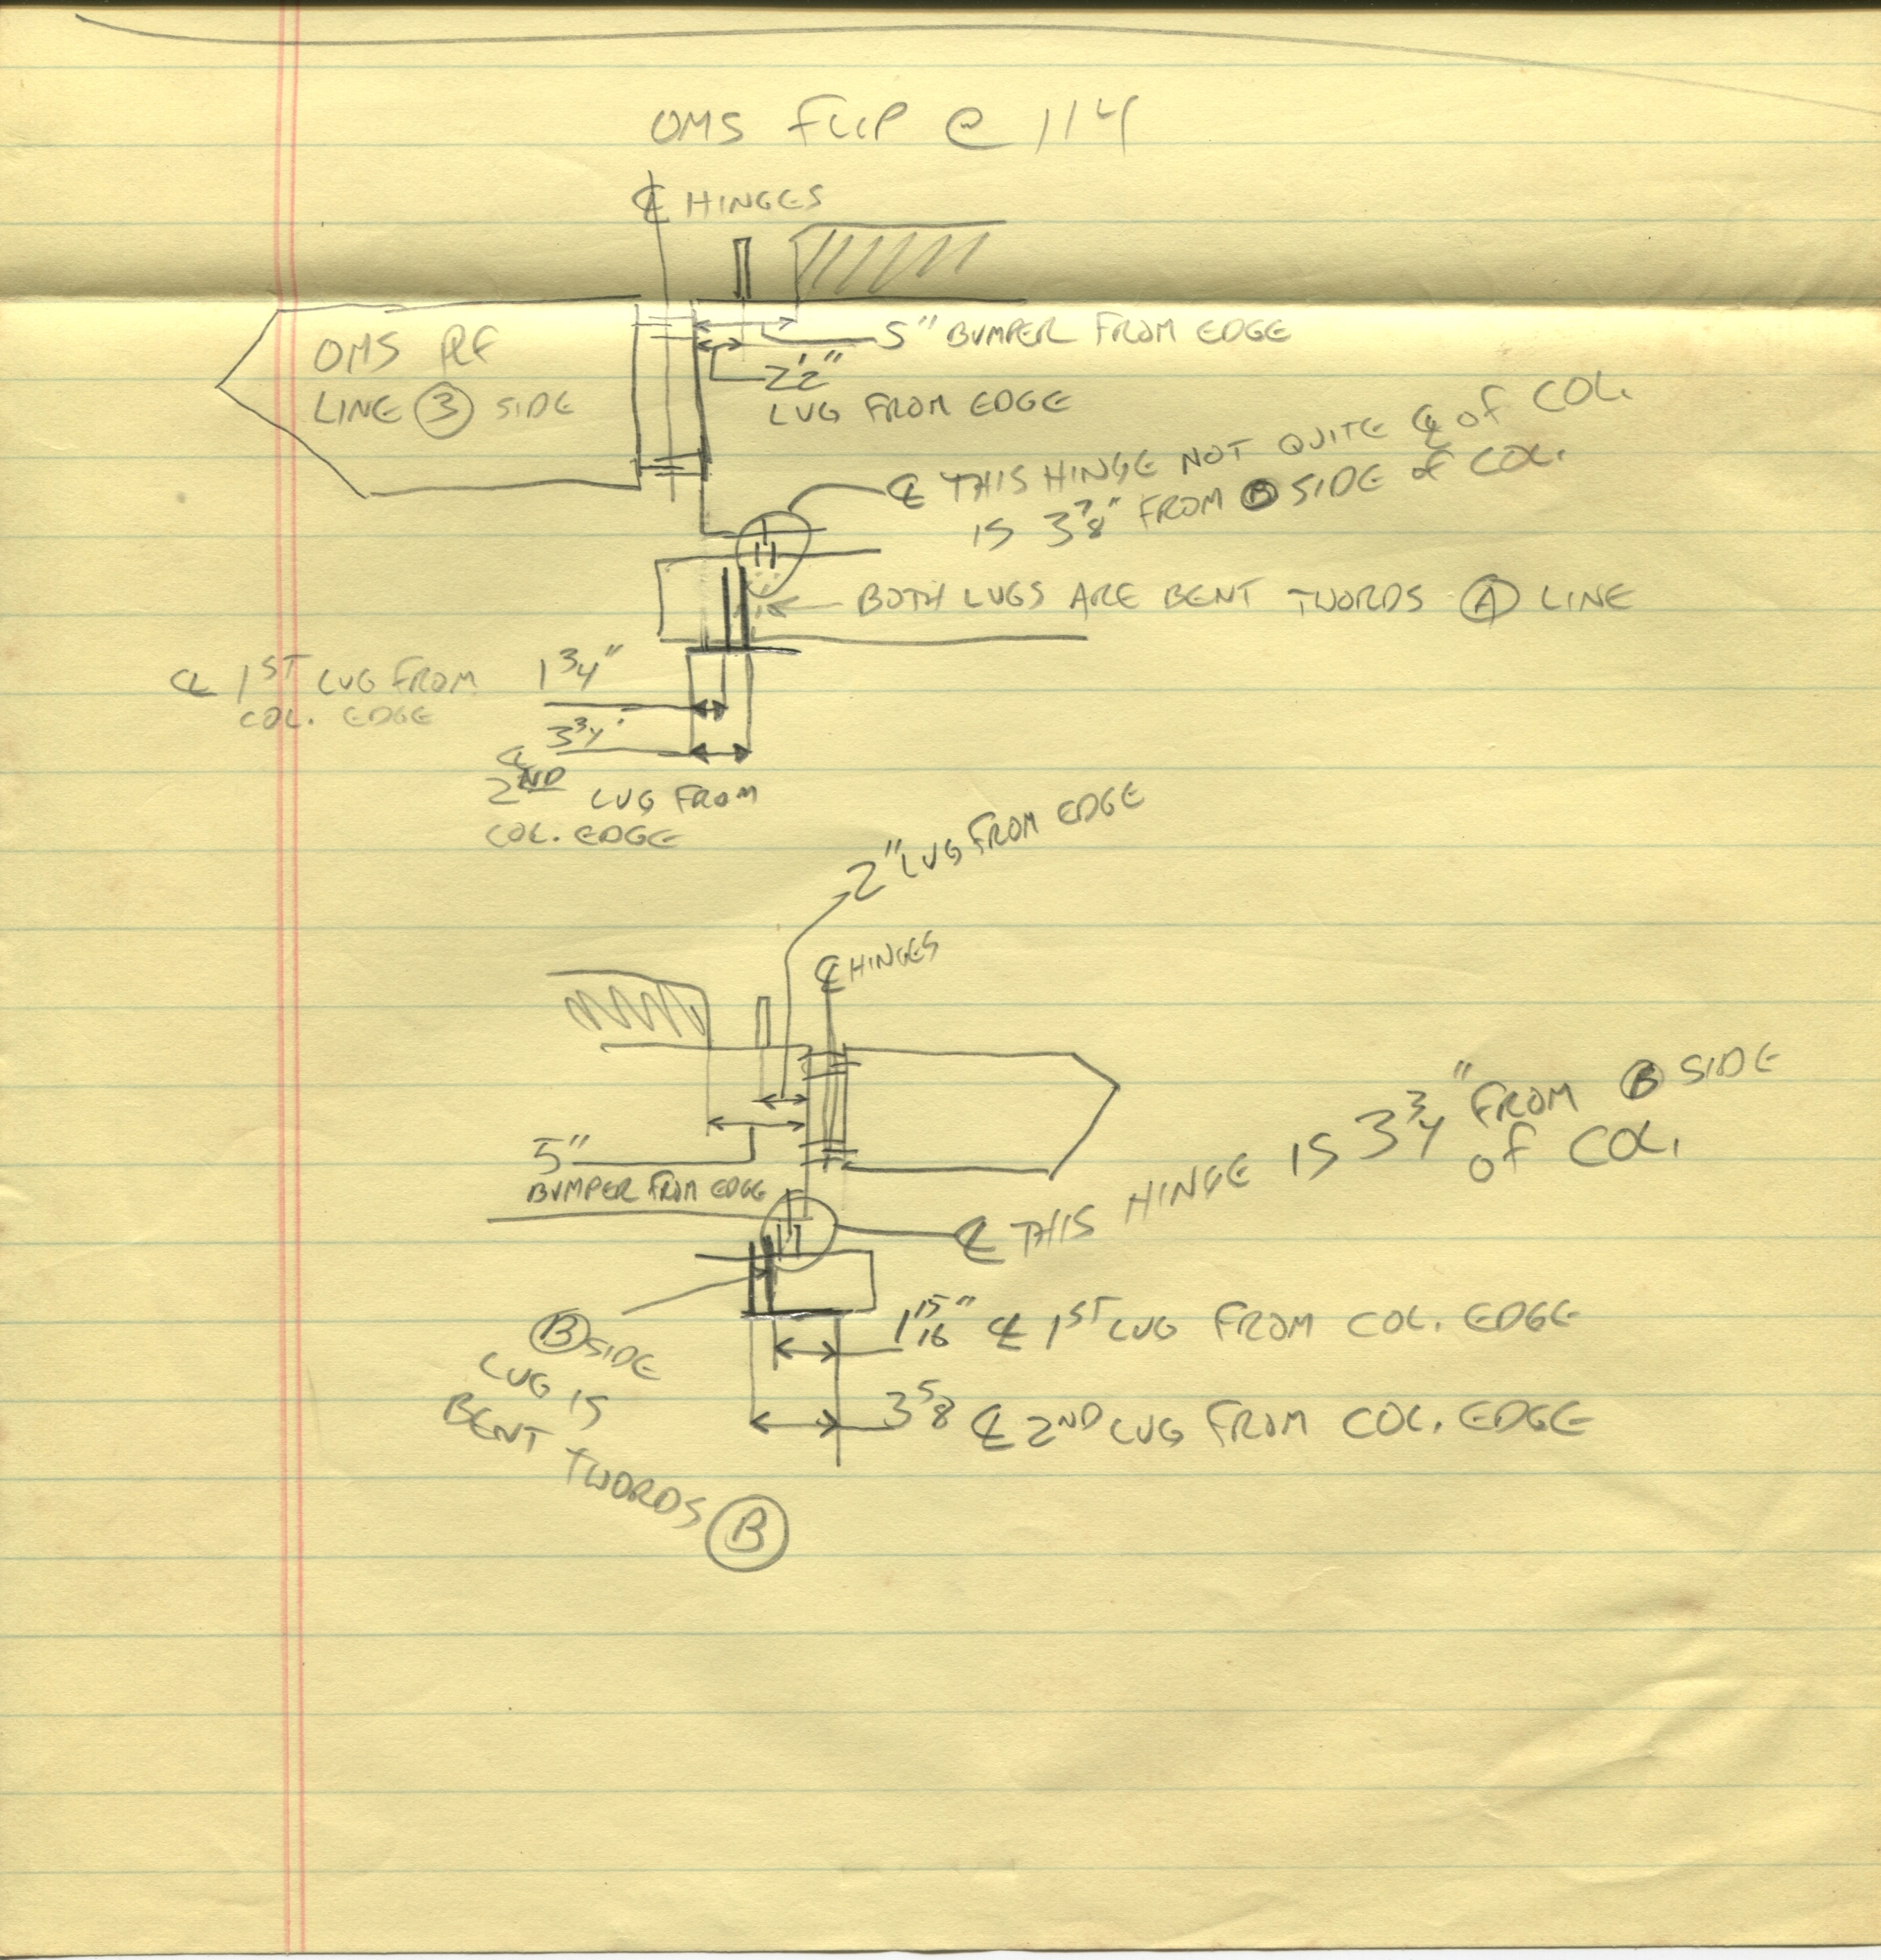 OMS FLIP @ 114
℄ HINGES
OMS PLF
LINE ③ SIDE
5" BUMPER FROM EDGE
2 1/2"
LUG FROM EDGE
℄ THIS HINGE NOT QUITE ℄ of COL.
IS 3 7/8" FROM Ⓑ SIDE of COL.
BOTH LUGS ARE BENT TWORDS Ⓐ LINE
℄ 1ST LUG FROM
COL. EDGE
1 3/4"
3 3/4"
℄
2ND LUG FROM
COL. EDGE
2" LUG FROM EDGE
℄ HINGES
5"
BUMPER FROM EDGE
℄ THIS HINGE IS 3 3/4" FROM Ⓑ SIDE
of COL.
Ⓑ SIDE
LUG IS
BENT TWORDS Ⓑ
1 15/16" ℄ 1ST LUG FROM COL. EDGE
3 5/8 ℄ 2ND LUG FROM COL. EDGE